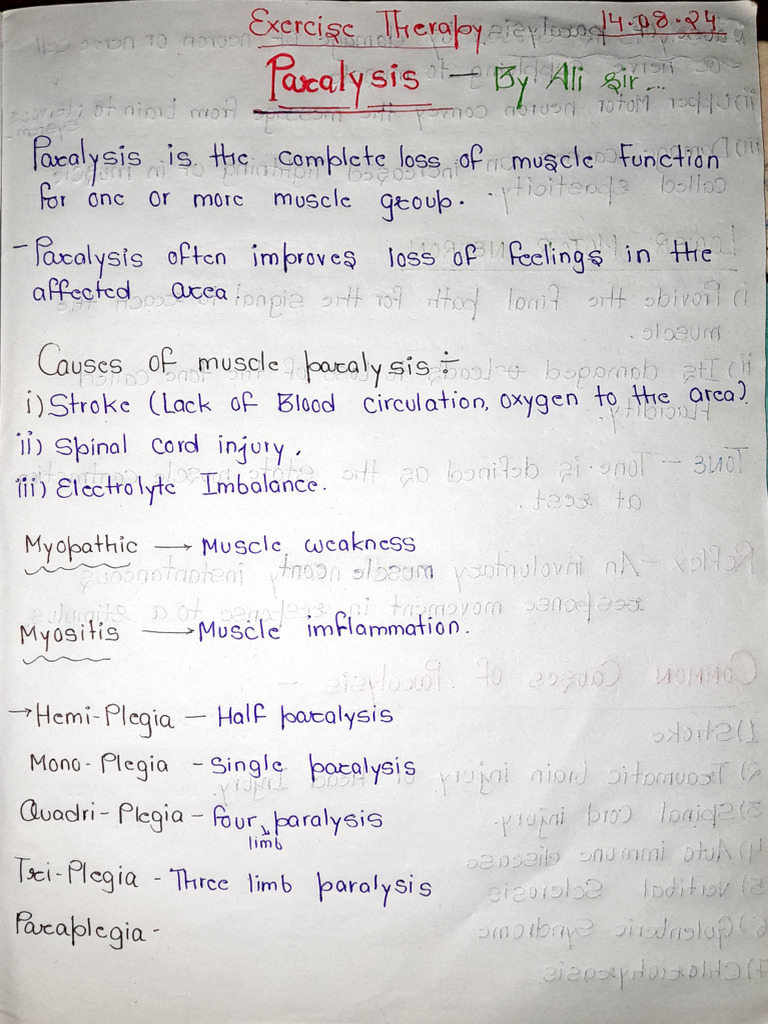 Exercise Therapy. 14.08.24
Paralysis — By Ali Sir...
Paralysis is the complete loss of muscle function
for one or more muscle group.
- Paralysis often improves loss of feelings in the
affected area.
Causes of muscle paralysis :-
i) Stroke (Lack of Blood circulation, oxygen to the area)
ii) Spinal cord injury.
iii) Electrolyte Imbalance.
Myopathic → Muscle weakness
Myositis → Muscle imflammation.
→ Hemi-Plegia — Half paralysis
Mono-Plegia - Single paralysis
Quadri-Plegia - four paralysis
limb
Tri-Plegia - Three limb paralysis
Paraplegia -